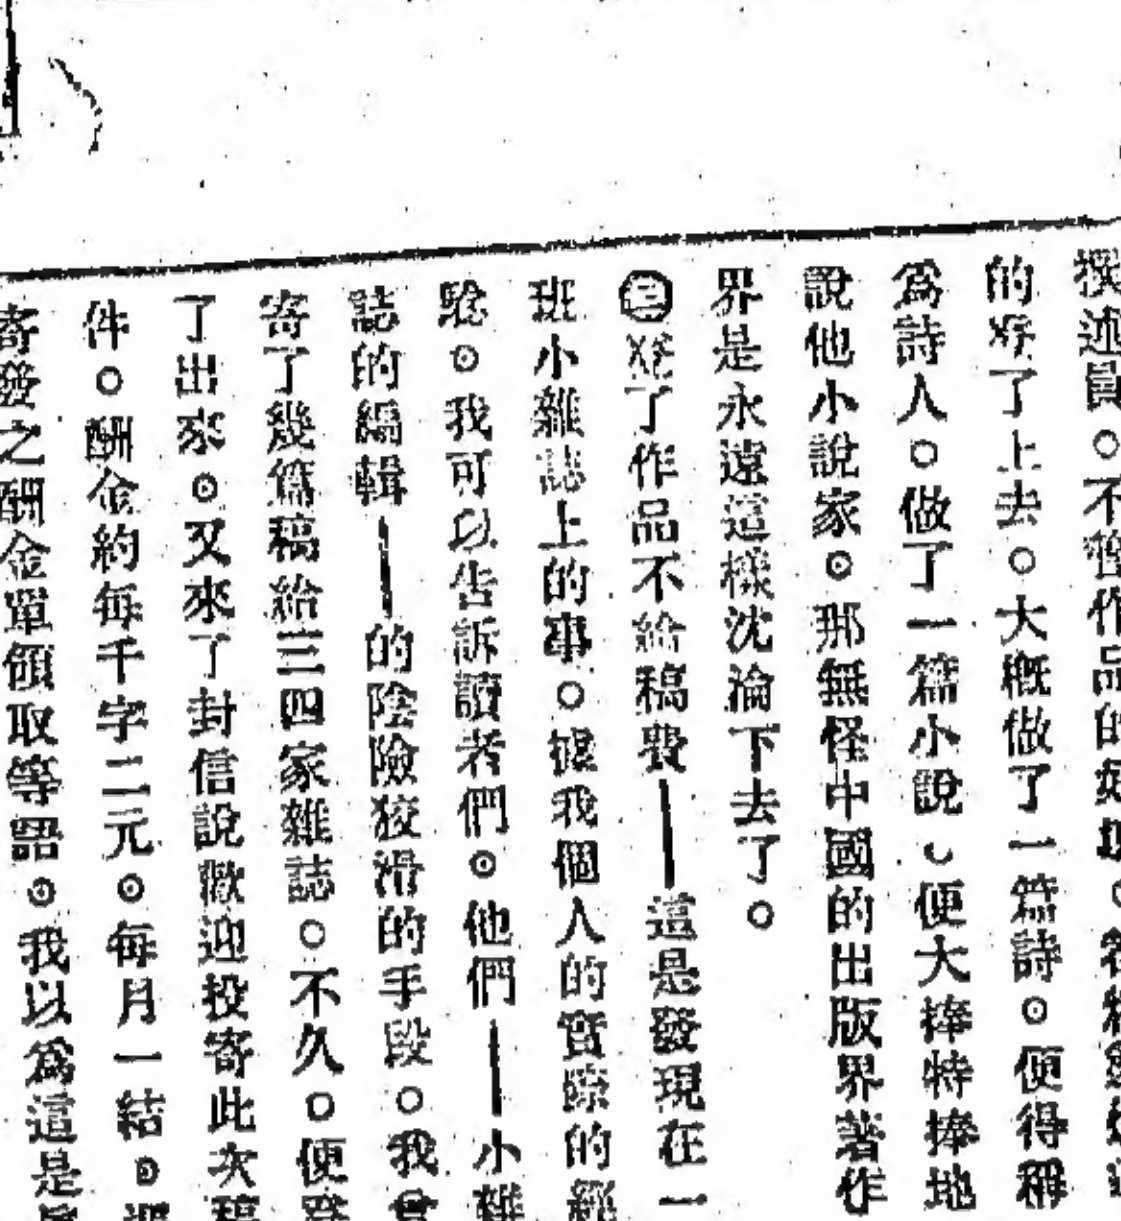 撰述員。不管作品的好壞。
的好了上去。大概做了一篇詩。便得稱
爲詩人。做了一篇小說。便大捧特捧地
說他小說家。那無怪中國的出版界著作
界是永遠這樣沈淪下去了。
㊁登了作品不給稿費——這是發現在一
班小雜誌上的事。據我個人的實際的經
驗。我可以告訴讀者們。他們——小雜
誌的編輯——的陰險狡滑的手段。我會
寄了幾篇稿給三四家雜誌。不久。便登
了出來。又來了封信說歡迎投寄此次稿
件。酬金約每千字二元。每月一結。
寄發之酬金單領取等語。我以爲這是